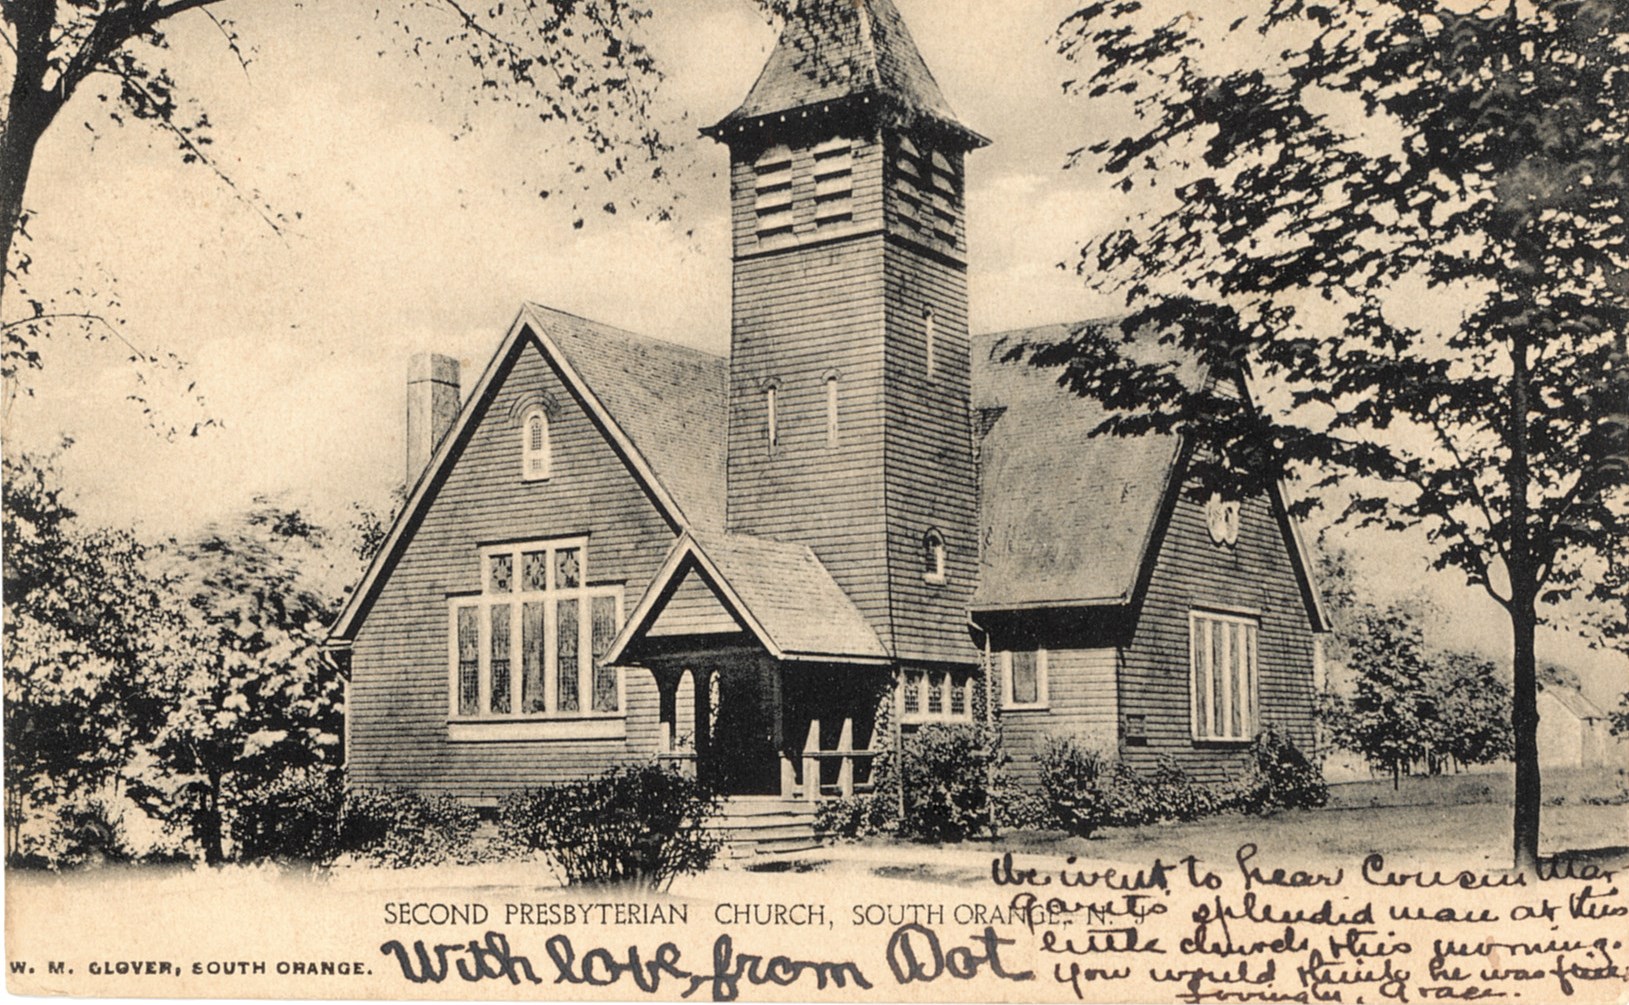 SECOND PRESBYTERIAN CHURCH, SOUTH ORANGE, N. J
W. M. GLOVER, SOUTH ORANGE.
With love, from Dot
We went to hear Cousin Mar
garet's splendid man at this
little church, this morning.
You would think he was fine
Lovingly, Grace.